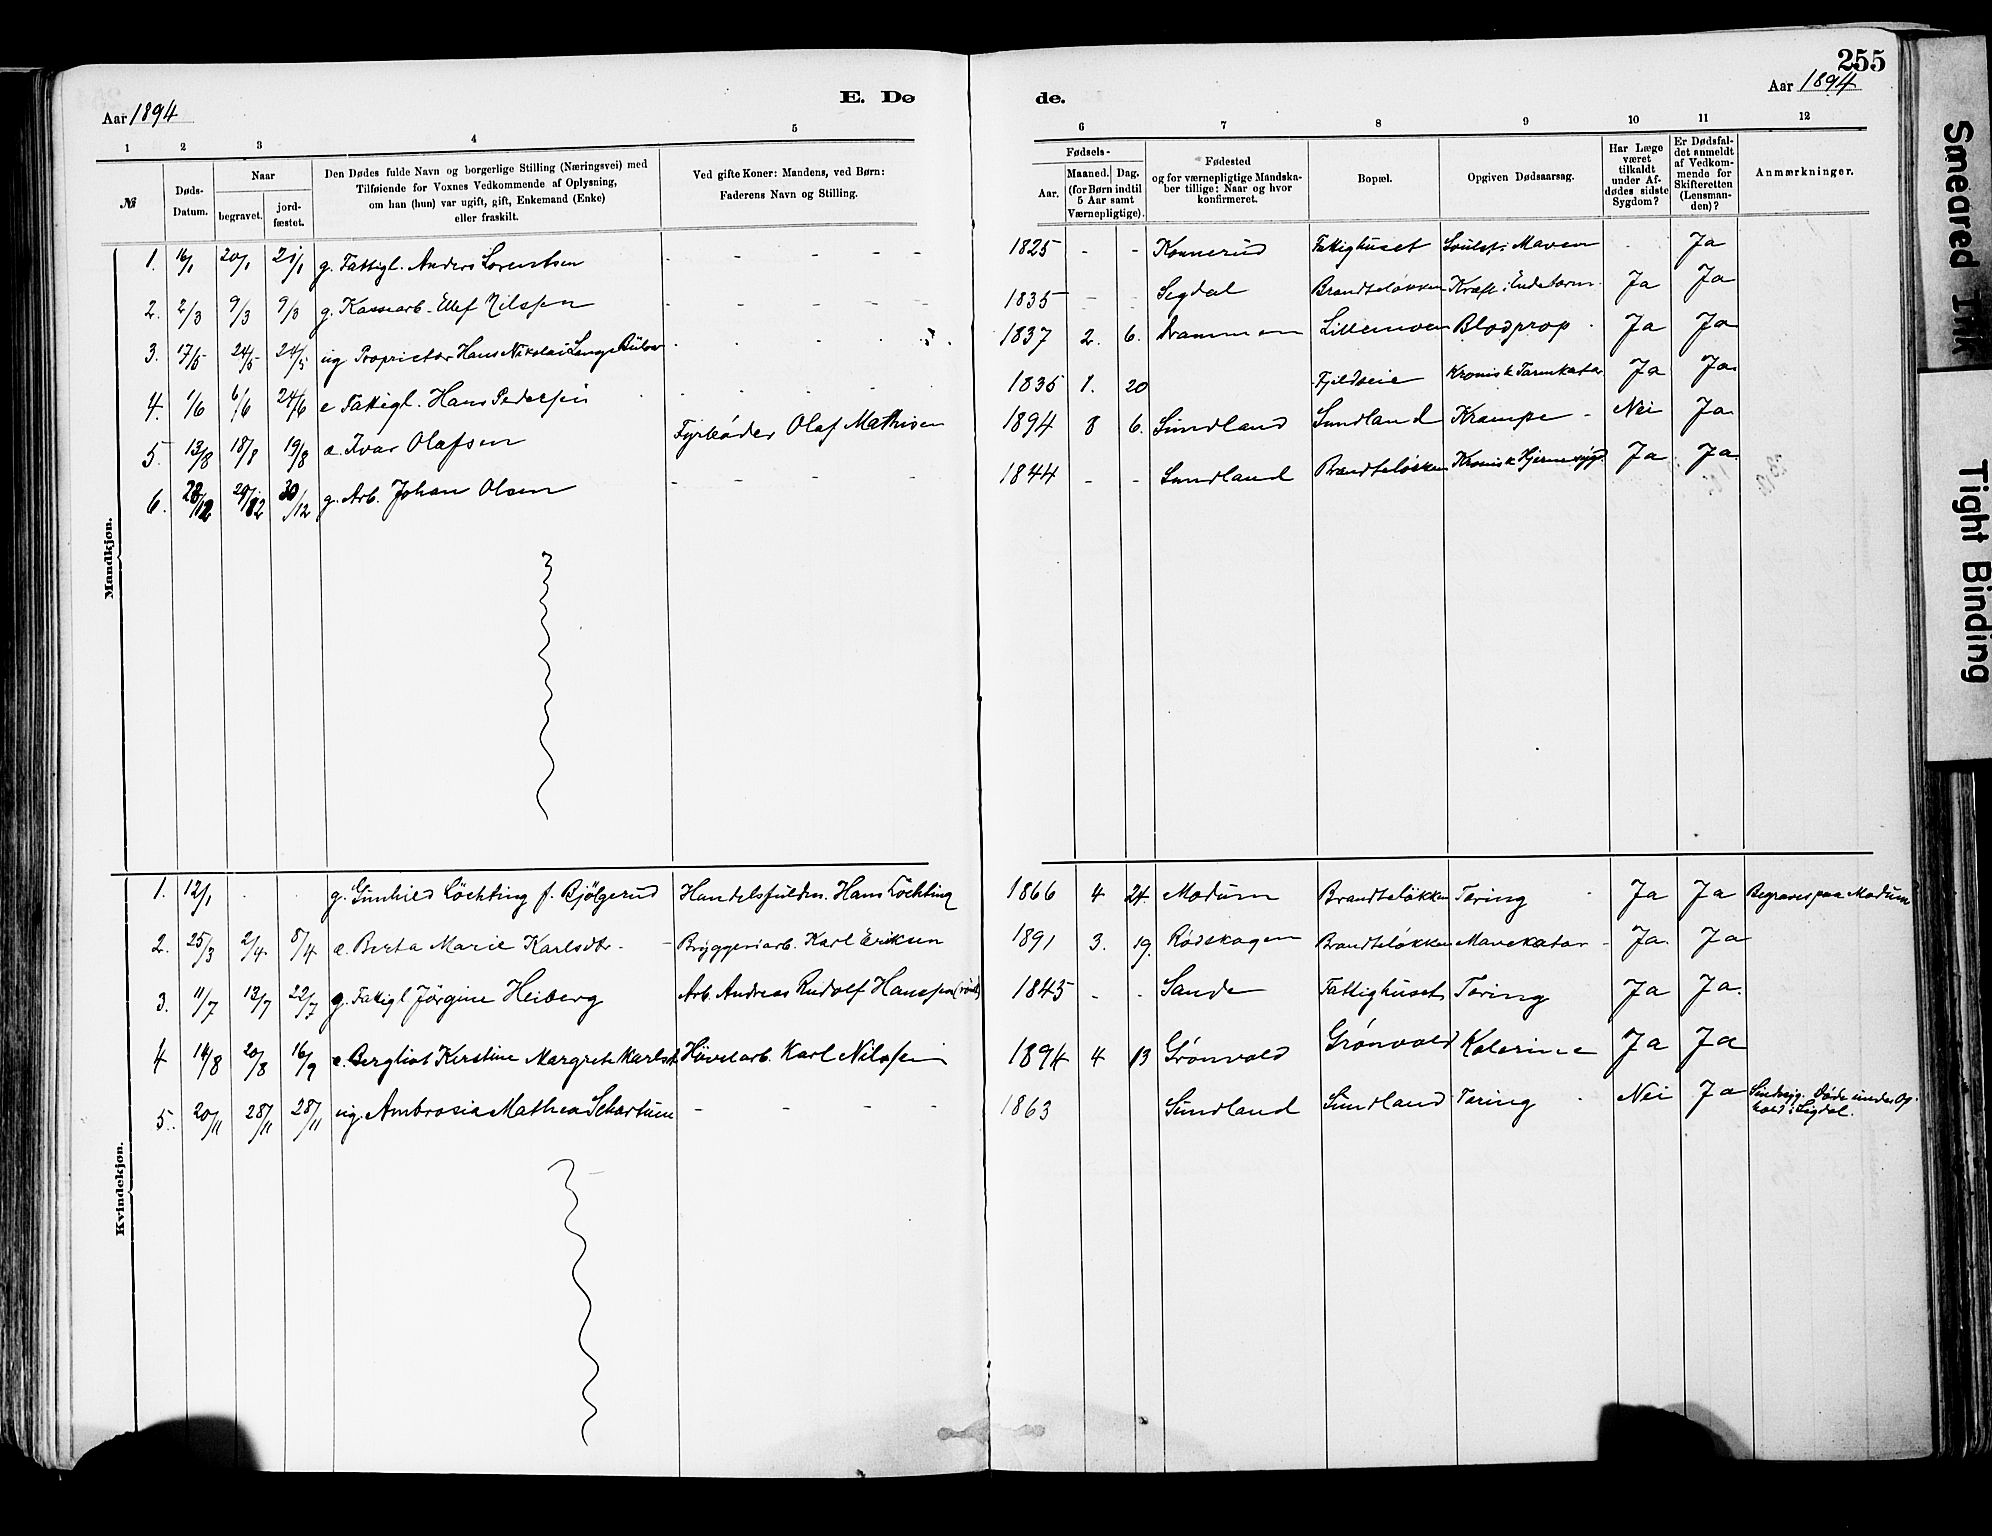 255
Aar 1894
E. Dø
de.
Aar 1894
1 2 3 4 5 6 7 8 9 10 11 12
№ Døds-Datum. Naar begravet. jordfæstet. Den Dødes fulde Navn og borgerlige Stilling (Næringsvei) med Tilføiende for Voxnes Vedkommende af Oplysning, om han (hun) var ugift, gift, Enkemand (Enke) eller fraskilt. Ved gifte Koner: Mandens, ved Børn: Faderens Navn og Stilling. Fødsels- Aar. Maaned. Dag. (for Børn indtil 5 Aar samt Værnepligtige). Fødested og for værnepligtige Mandskaber tillige: Naar og hvor konfirmeret. Bopæl. Opgiven Dødsaarsag. Har Læge været tilkaldt under Afdødes sidste Sygdom? Er Dødsfaldet anmeldt af Vedkommende for Skifteretten (Lensmanden)? Anmærkninger.
Mandkjøn.
1. 16/1 20/1 21/1 g. Fattigl. Anders Lorentsen - - - - 1825 - - Konnerud Fattighuset i Maven - Ja
2. 2/3 9/3 9/3 g. Kassearb. Ellef Nilssen - - - - 1835 - - Sigdal Brandteløkken Kræft i Endetarm. Ja Ja
3. 17/5 24/5 24/5 ug. Proprietær Hans Nikolai Lange - - - 1837 2. 6. Drammen Lillemoen Blodprop - Ja Ja
4. 1/6 6/6 24/6 e Fattigl. Hans Pedersen - - - - 1835 1. 20 Fjeldseie Kronisk Tarmkatar Ja Ja
5. 13/8 18/8 19/8 æ. Ivar Olafsen Fyrbøder Olaf Mathisen 1894 8 6. Sundland Sundland Krampe - Nei Ja
6. 28/12 29/12 30/12 g. Arb. Johan Olsen - - - - 1844 - - Sundland Brandteløkken Kronisk Hjernesygd. Ja Ja
Kvindekjøn.
1. 12/1 - - g. Gunhild Löchting f. Bjölgerud Handelsfuldm. Hans Löchting 1866 4 24. Modum Brandteløkken Tæring - Ja Ja Begraves paa Modum
2. 25/3 2/4 8/4 æ. Berta Marie Karlsdtr. - Bryggeriarb. Karl Eriksen 1891 3. 19. Rødskogen Brandteløkken Mavekatar - Ja. Ja
3. 11/7 13/7 22/7 g. Fattigl Jörgine Heiberg Arb. Andreas Rudolf Hanssen 1845 - - Sande Fattighuset Tæring Ja Ja.
4 14/8 20/8 16/9 æ. Bergliot Kirstine Margrete Karlsd. Høvelarb. Karl Nilssen 1894 4 13 Grønvold Grønvold Kolerine Ja Ja
5. 20/11 28/11 28/11 ug. Ambrosia Mathea Schartum - - - - 1863 Sundland Sundland Tæring - Nei Ja Sindsyg. Døde under Op-
hold i Sigdal.
Smeared Ink
Tight Binding